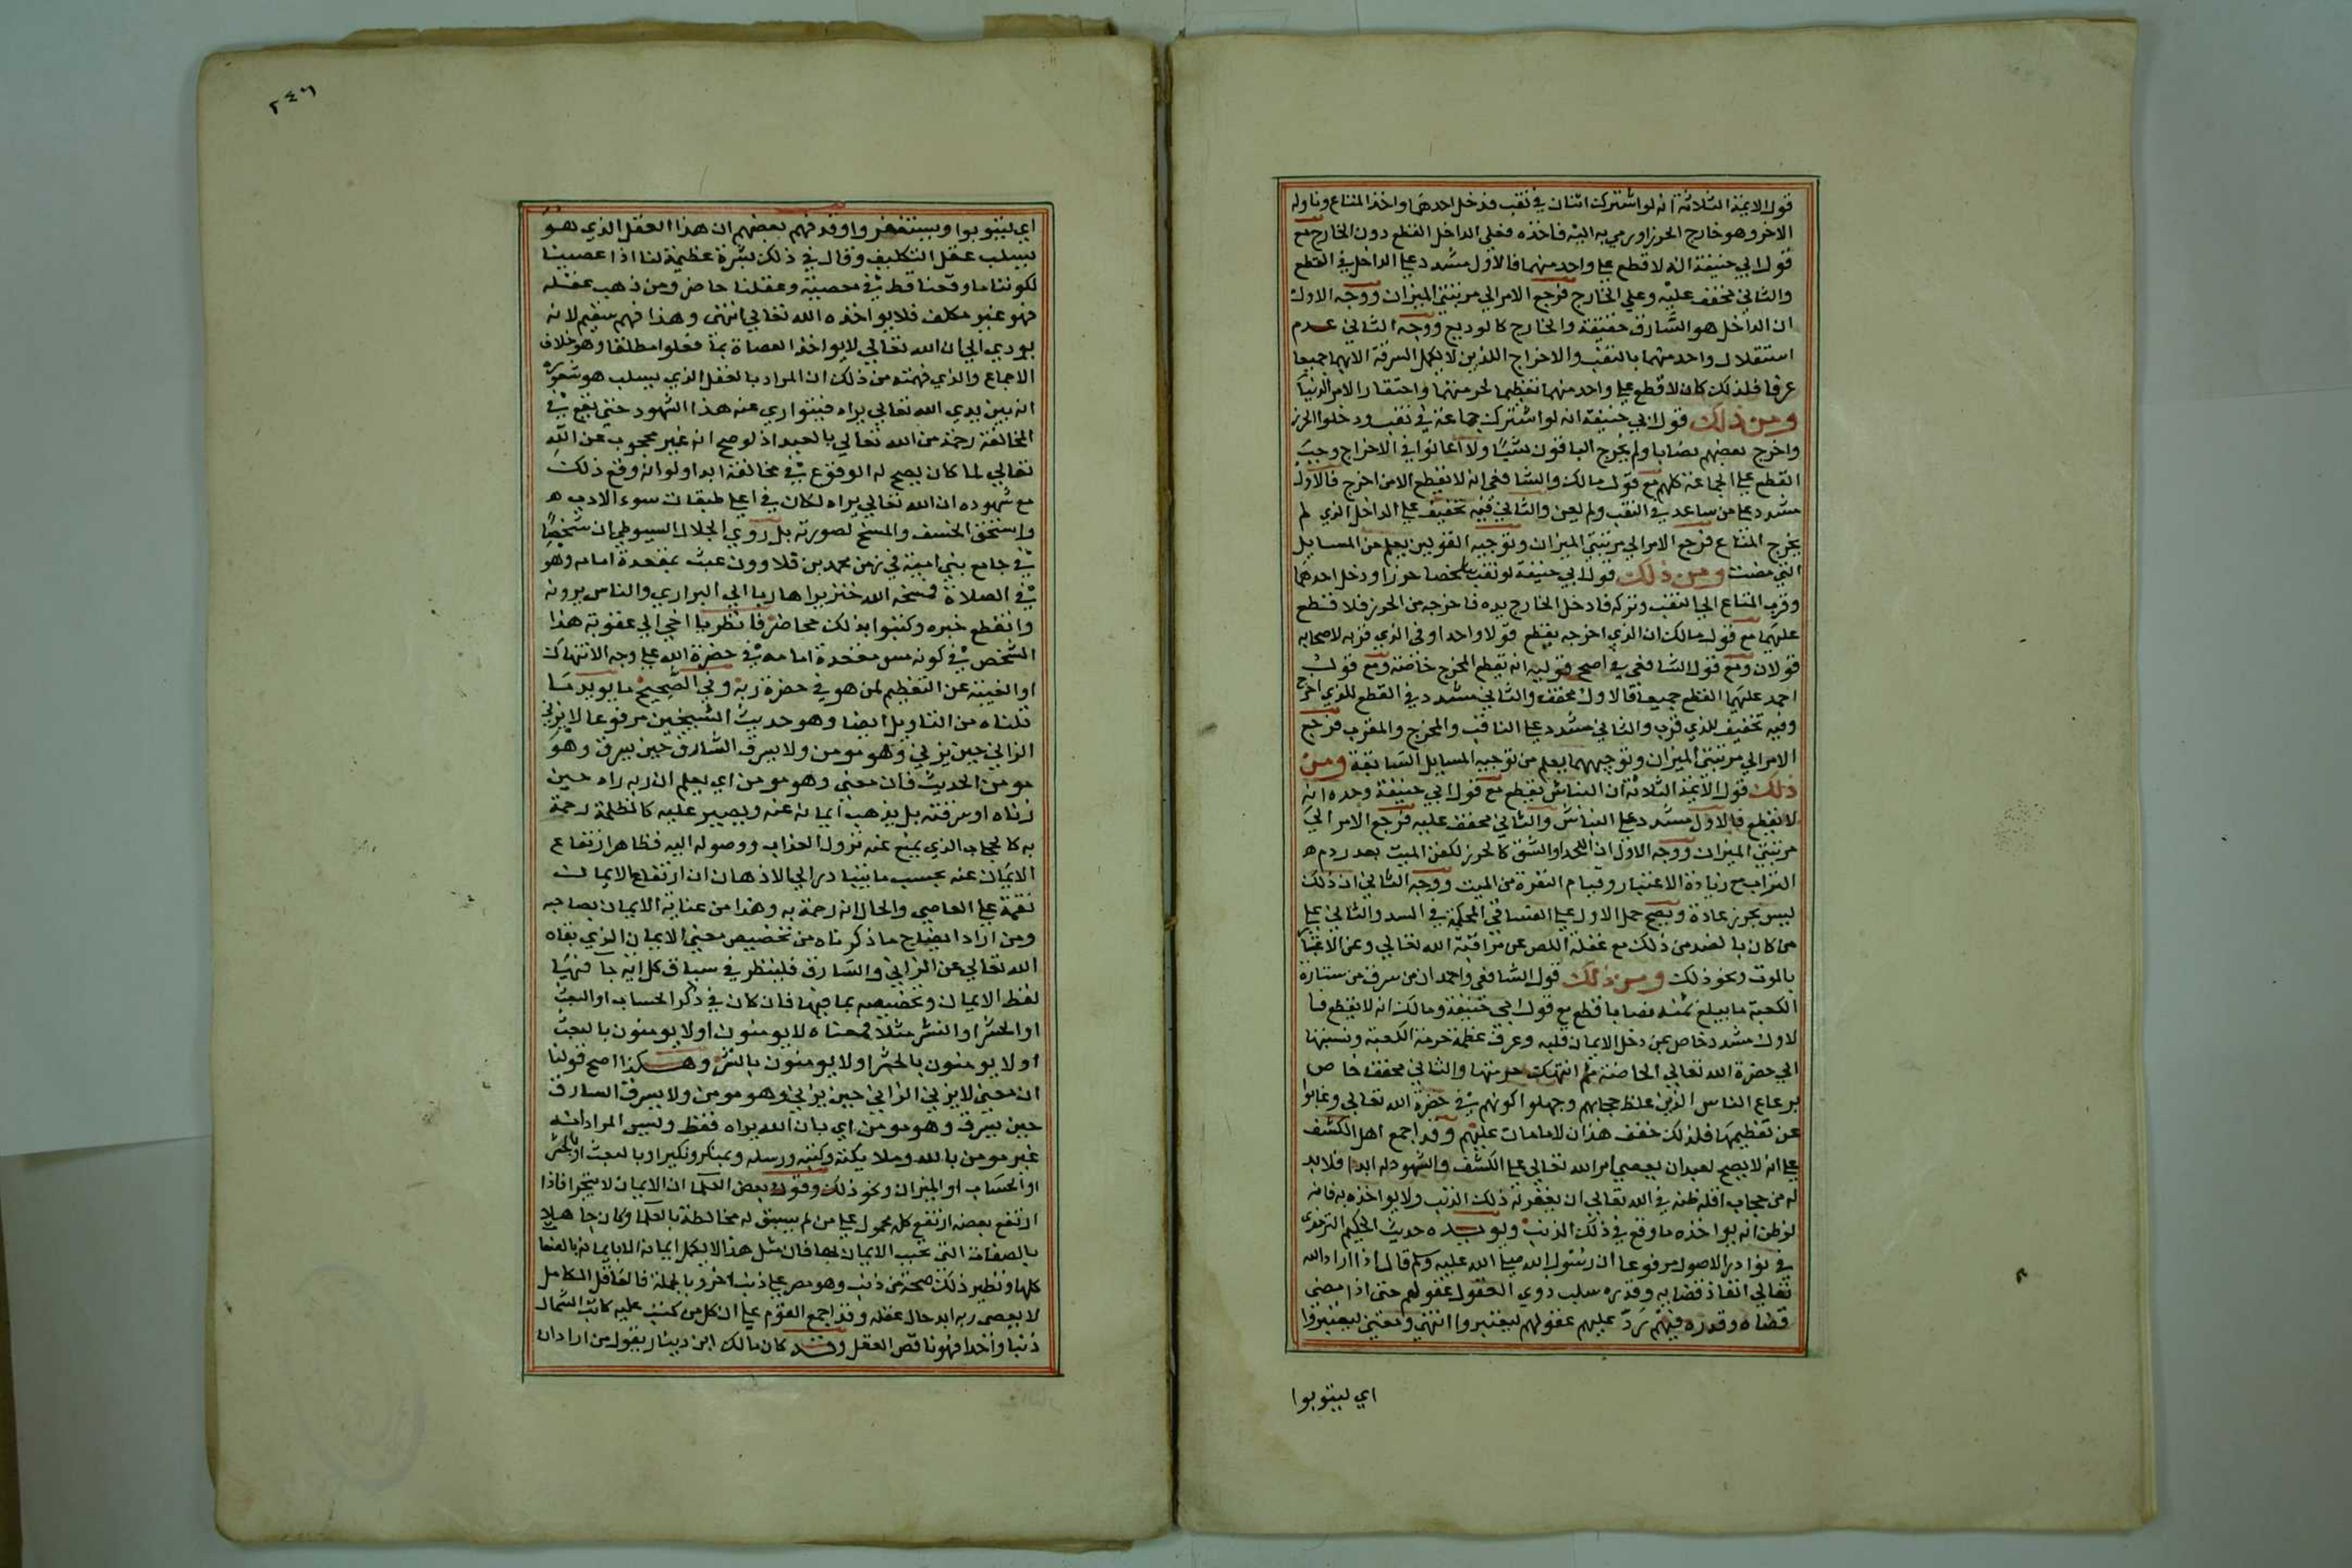 قول الايمة الثلاثة انه لو اشترك اثنان في نقب فدخل احدهما واخذ المتاع وناوله
الاخر وهو خارج الحرز او رمي به اليه فاخذه فعلي الداخل القطع دون الخارج مع
قول ابي حنيفة انه لا قطع علي واحد منهما فالاول مشدد علي الداخل في القطع
والثاني مخفف عليه وعلي الخارج فرجع الامر الي مرتبتي الميزان ووجه الاول
ان الداخل هو السارق حقيقة والخارج كالوديع ووجه الثاني عدم
استقلال واحد منهما بالنقب والاخراج اللذين لا يكمل السرقة الا بهما جميعا
عرفا فلذلك كان لا قطع علي واحد منهما تعظيما لحرمتهما واحتقارا لامر الدنيا
ومن ذلك قول ابي حنيفة انه لو اشترك جماعة في نقب ودخلوا الحرز
واخرج بعضهم نصابا ولم يخرج الباقون شيًا ولا اعانوا في الاخراج وجب
القطع علي الجماعة كلهم مع قول مالك والشافعي انه لا يقطع الا من اخرج فالاول
مشدد علي من ساعد في النقب ولم يعن والثاني فيه تخفيف علي الداخل الذي لم
يخرج المتاع فرجع الامر الي مرتبتي الميزان وتوجيه القولين يعلم من المسايل
التي مضت ومن ذلك قول ابي حنيفة لو نقب شخصا حرزا ودخل احدهما
وقرب المتاع الي النقب وتركه فادخل الخارج يده فاخرجه من الحرز فلا قطع
عليهما مع قول مالك ان الذي اخرجه يقطع قولا واحدا وفي الذي قربه لاصحابه
قولان ومع قول الشافعي في اصح قوليه انه يقطع المخرج خاصة ومع قول
احمد عليهما القطع جميعا فالاول مخفف والثاني مشدد في القطع للذي اخرج
وفيه تخفيف للذي قرب والثاني مشدد علي الناقب والمخرج والمقرب فرجع
الامر الي مرتبتي الميزان وتوجيههما يعلم من توجيه المسايل السابقة ومن
ذلك قول الايمة الثلاثة ان النباش يقطع مع قول ابي حنيفة وحده انه
لا يقطع فالاول مشدد علي النباش والثاني مخفف عليه فرجع الامر الي
مرتبتي الميزان ووجه الاول ان اللحد او الشق كالحرز لكفن الميت بعد ردم
التراب مع زيادة الاعتبار وقيام النفرة من الميت ووجه الثاني ان ذلك
ليس بحرز عادة ويصح حمل الاول علي القساقي المحكمة في السد والثاني علي
من كان بالضد من ذلك مع غفلة اللص عن مراقبة الله تعالي وعن الاعتبار
بالموت ونحو ذلك ومن ذلك قول الشافعي واحمد ان من سرق من ستارة
الكعبة ما يبلغ ثمنه نصابا قطع مع قول ابي حنيفة ومالك انه لا يقطع فا
لاول مشدد خاص بمن دخل الايمان قلبه وعرف عظمة حرمة الكعبة ونسبتها
الي حضرة الله تعالي الخاصة ثم انتهك حرمتها والثاني مخفف خاص
برعاع الناس الذين غلظ حجابهم وجهلوا كونهم في حضرة الله تعالي وغابوا
عن تعظيمها فلذلك خفف هذان الامامان عليهم وقد اجمع اهل الكشف
علي انه لا يصح لعبد ان يعصي امر الله تعالي علي الكشف والشهود له ابدا فلا بد
له من حجاب اقله ظنه في الله تعالي ان يغفر له ذلك الذنب ولا يواخذه به فانه
لو ظن انه يواخذه ما وقع في ذلك الذنب ويويده حديث الحكيم الترمذي
في نوادر الاصول مرفوعا ان رسول الله صلي الله عليه وسلم قال اذا اراد الله
تعالي انفاذ قضايه وقدره سلب ذوي العقول عقولهم حتي اذا مضي
قضاه وقدره فيهم رد عليهم عقولهم ليعتبروا انتهي ومعني ليعتبروا
اي ليتوبوا
٢٤٦
اي ليتوبوا ويستغفروا وقد فهم بعضهم ان هذا العقل الذي هو
يسلب عقل التكليف وقال في ذلك بشرة عظيمة لنا اذا عصينا
لكوننا ما وقعنا قط في معصية وعقلنا حاضر ومن ذهب عقله
فهو غير مكلف فلا يواخذه الله تعالي انتهي وهذا فهم سقيم لانه
يودي الي ان الله تعالي لا يواخذ العصاة بما فعلوا مطلقا وهو خلاف
الاجماع والذي فهمته من ذلك ان المراد بالعقل الذي يسلب هو شعوره
انه بين يدي الله تعالي يراه فيتواري عنه هذا الشهود حتي يقع في
المخالفة رحمة من الله تعالي بالعبد اذ لو صح انه غير محجوب عن الله
تعالي لما كان يصح له الوقوع في مخالفة ابدا ولو انه وقع ذلك
مع شهوده ان الله تعالي يراه لكان في اعلي طبقات سوء الادب
واستحق الخسف والمسخ لصورته بل روي الجلال السيوطي ان شخصًا
في جامع بني امية في زمن محمد بن قلاوون عبث بمقعدة امامه وهو
في الصلاة فمسخه الله خنزيرا هاربا الي البراري والناس يرونه
وانقطع خبره وكتبوا بذلك محاضر فانظر يا اخي الي عقوبة هذا
الشخص في كونه مس مقعدة امامه في حضرة الله علي وجه الانتهاك
او الغيبة عن التعظيم لمن هو في حضرة ربه وفي الصحيح ما يويد ما
قلناه من التاويل ايضا وهو حديث الشيخين مرفوعا لا يزني
الزاني حين يزني وهو مومن ولا يسرق السارق حين يسرق وهو
مومن الحديث فان معني وهو مومن اي يعلم ان ربه راه حين
زناه او سرقته بل يذهب ايمانه عنه ويصير عليه كالظلة رحمة
به كالحجاب الذي يمنع عنه نزول العذاب ووصوله اليه فظاهر ارتفاع
الايمان عنه بحسب ما يتبادر الي الاذهان ان ارتفاع الايمان
نقمة علي العاصي والحال انه رحمة به وهذا من عناية الايمان بصاحبه
ومن اراد ايضاح ما ذكرناه من تخصيص معني الايمان الذي نفاه
الله تعالي عن الزاني والسارق فلينظر في سياق كل اية جا فيها
لفظ الايمان وتخصيصه بما فيها فان كان في ذكر الحساب او البعث
او الحشر او النشر مثلا فمعناه لا يومنون اولا يومنون بالبعث
او لا يومنون بالحشر او لا يومنون بالنشر وهكذا اصح قولنا
ان معني لا يزني الزاني حين يزني وهو مومن ولا يسرق السارق
حين يسرق وهو مومن اي بان الله يراه فقط وليس المراد انه
غير مومن بالله وملايكته وكتبه ورسله وبمنكر ونكير او بالبعث او بالحشر
او الحساب او الميزان ونحو ذلك وقول بعض العلما ان الايمان لا يتجزا فاذا
ارتفع بعضه ارتفع كله محمول علي من لم يسبق له مخالطة بالعلما وكان جاهلا
بالصفات التي يجب الايمان بها فان مثل هذا لا يكمل ايمانه الا بايمانه بالصفات
كلها ونظير ذلك صحة من ذنب وهو مصر علي ذنب اخر وبالجملة فالعاقل الكامل
لا يعصي ربه ابدا حال عقله وقد اجمع القوم علي ان كل من كتب عليه كاتب الشمال
ذنبا واحدا فهو ناقص العقل وقد كان مالك ابن دينار يقول من اراد ان